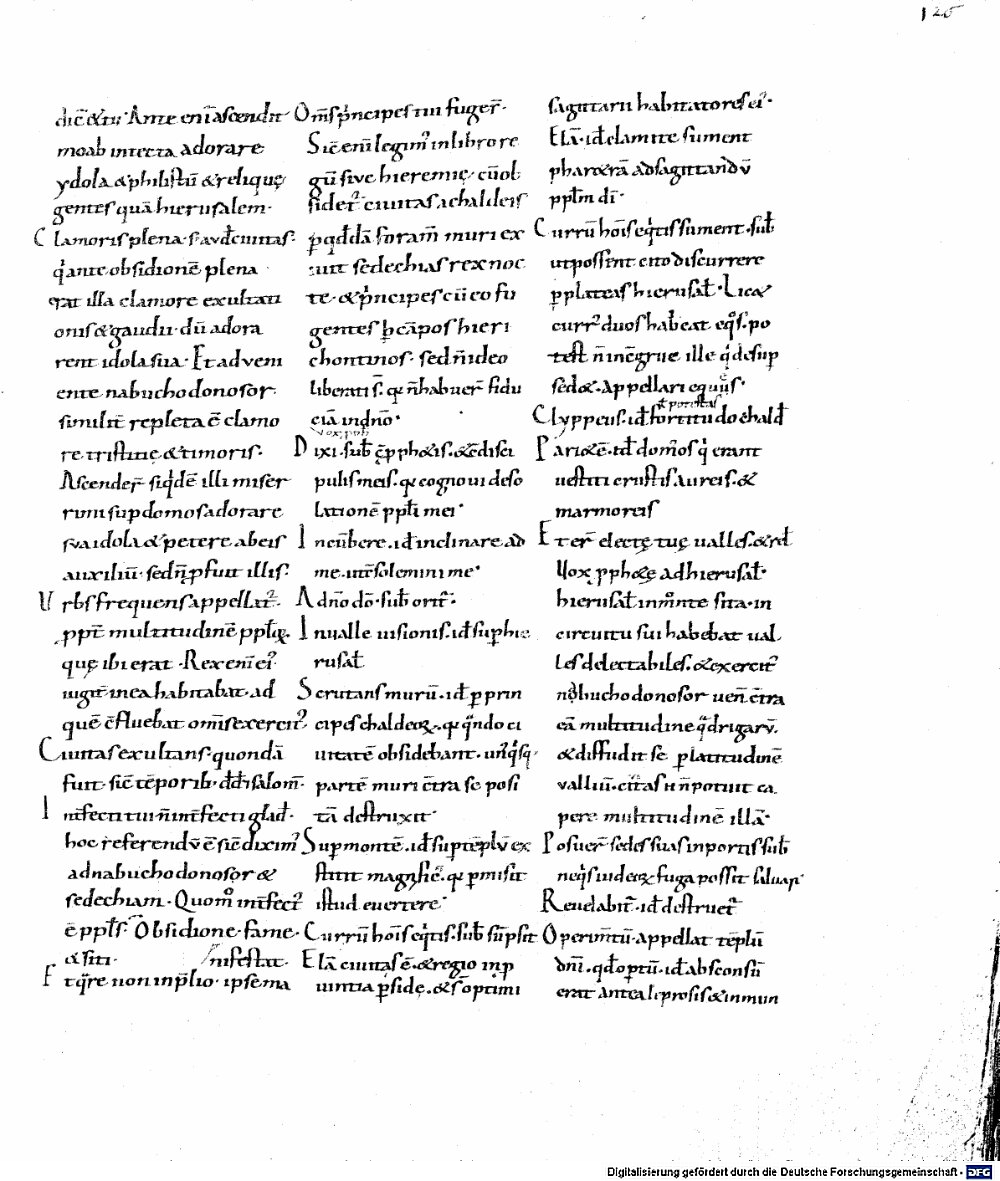 125
dic̄ & tᷣ. Ante enī ascendit
moab intecta adorare
ydola & philistiī & reliquę
gentes quā hierusalem.
Clamoris plena. s. aud̄ ciuitas.
q̇ ante obsidionē plena
erat illa clamore exultati
onis & gaudii. dū adora
rent idola sua. Et ad veni
ente nabuchodonosor.
similit̄ repleta ē clamo
re tristitię & timoris.
Ascender̄ siqdē illi miser
rimi sup domos adorare
sva idola & petere ab eis
auxiliū. sed ñ pfuit illis.
Urbs frequens appellat᷑.
ppt̄ multitudinē ppłoꝝ.
quę ibi erat. Rex enī ei᷒
iugit̄ in ea habitabat. ad
quē c̄fluebat om̄is exercit᷒
Ciuitas exultans. quondā
fuit. sic̄ tēporib. dd̄. salom̄.
Int̄fecti tui ñ int̄fecti glad̄.
hoc referendv̄ ē sic̄ dixim᷒
ad nabuchodonosor &
sedechiam. Quom̊ int̄fect᷒
ē ppłs. Obsidione. fame.
& siti.
Et q̄re non in p̄lio. ipse ma
nifestat.
Om̄s p̄ncipes tui fuger̄.
Sic̄ enī legim᷒ in libro re
gū sive hieremię. cū ob
sideret᷑ ciuitas a chaldeis
p qd̄dā foram̄ muri ex
iuit sedechias rex noc
te. & p̄ncipes cū eo fu
gentes p cāpos hieri
chontinos. sed ñ ideo
liberati s̄. q ñ habuer̄ fidu
ciā in dn̄o.
Vox pph
Dixi. sub̄ ę̄ pph&is. & ē disci
pulis meis. q cognoui deso
lationē ppłi mei.
Incūbere. id̄ inclinare ad
me. ut ̄solemini me.
A dn̄o dō. sub̄ orit᷑.
In ualle uisionis. id̄ sup hie
rusał
Scrutans murū. id̄ p prin
cipes chaldeoꝝ. q qn̄do ci
uitatē obsidebant. un᷒q̇sq
partē muri c̄tra se posi
tā destruxit.
Sup montē. id̄ sup tēplv̄ ex
stitit magnific᷒. q pmisit
istud euertere.
Currū hoīs eq̇tis. sub̄ sūpsit
Elā ciuitas ē. & regio in p
uintia psidę. & s̄ optimi
sagittarii habitatores ei᷒.
Elā. id̄ elamite sument
phar&rā ad sagittandv̄
ppłm dī.
Currū hoīs eq̇tis sument. sub̄
ut possint cito discurrere
p plateas hierusał. Lic&
curr᷒ duos habeat eq̊s. po
test ñ incgrue ille q̇ desup
sed&. appellari equus.
ł potestas
Clyppeus. id̄ fortitudo chald̄
Pari&ē. id̄ domos q̇ erant
uestiti crustis. aureis. &
marmoreis
Et er̄ electę tuę ualles. & rł
Uox pph&ę ad hierusał.
hierusał in mōnte sita. in
circuitu sui habebat ual
les delectabiles. & exercit᷒
nabuchodonosor uen̄ c̄tra
eā multitudine q̄drigarv̄.
& diffudit se p latitudinē
valliū. ciuitas ñ potuit ca
pere multitudinē illā.
Posuer̄ sedes suas in portis. sub̄
neq̇s iudeoꝝ fuga possit saluari
Reuelabit᷑. id̄ destruet᷑
Operim̄tū. appellat tēplū
dn̄i. qd̄ optū. id̄ absconsū
erat antea leprosis & inmun
Digitalisierung gefördert durch die Deutsche Forschungsgemeinschaft - DFG